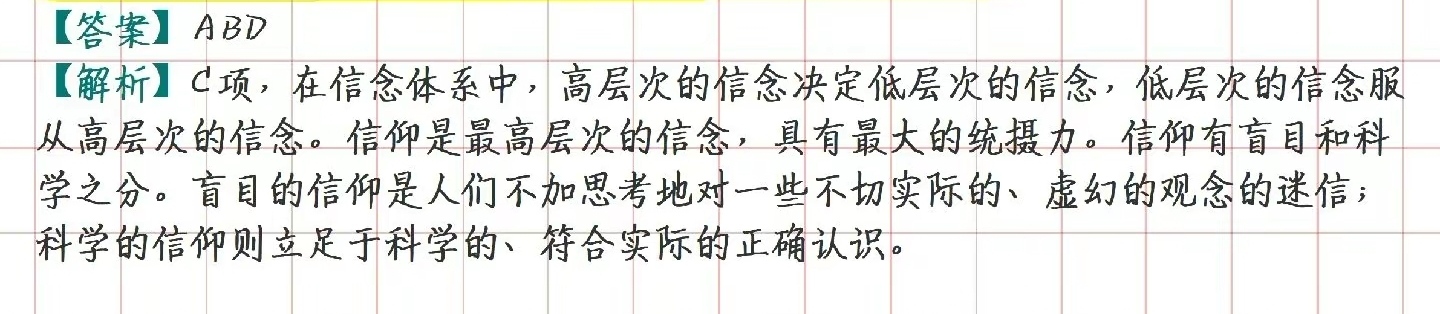 【答案】ABD
【解析】C项，在信念体系中，高层次的信念决定低层次的信念，低层次的信念服
从高层次的信念。信仰是最高层次的信念，具有最大的统摄力。信仰有盲目和科
学之分。盲目的信仰是人们不加思考地对一些不切实际的、虚幻的观念的迷信；
科学的信仰则立足于科学的、符合实际的正确认识。